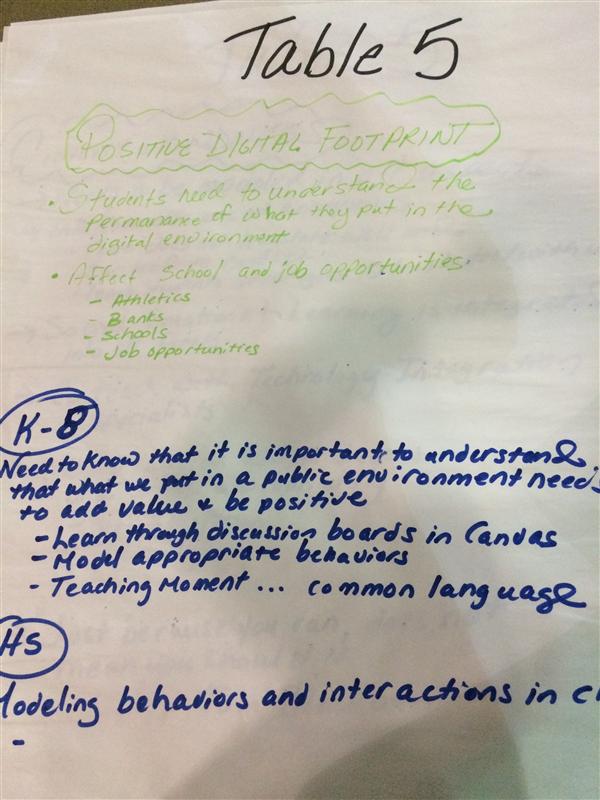 Table 5
POSITIVE DIGITAL FOOTPRINT
• Students need to understand the
permanance of what they put in the
digital environment
• Affect School and job opportunities
- Athletics
- Banks
- Schools
- Job opportunities
K-8
Need to Know that it is important to understand
that what we put in a public environment needs
to add value & be positive
- Learn through discussion boards in Canvas
- Model appropriate behaviors
- Teaching Moment ... common language
HS
Modeling behaviors and interactions in
-